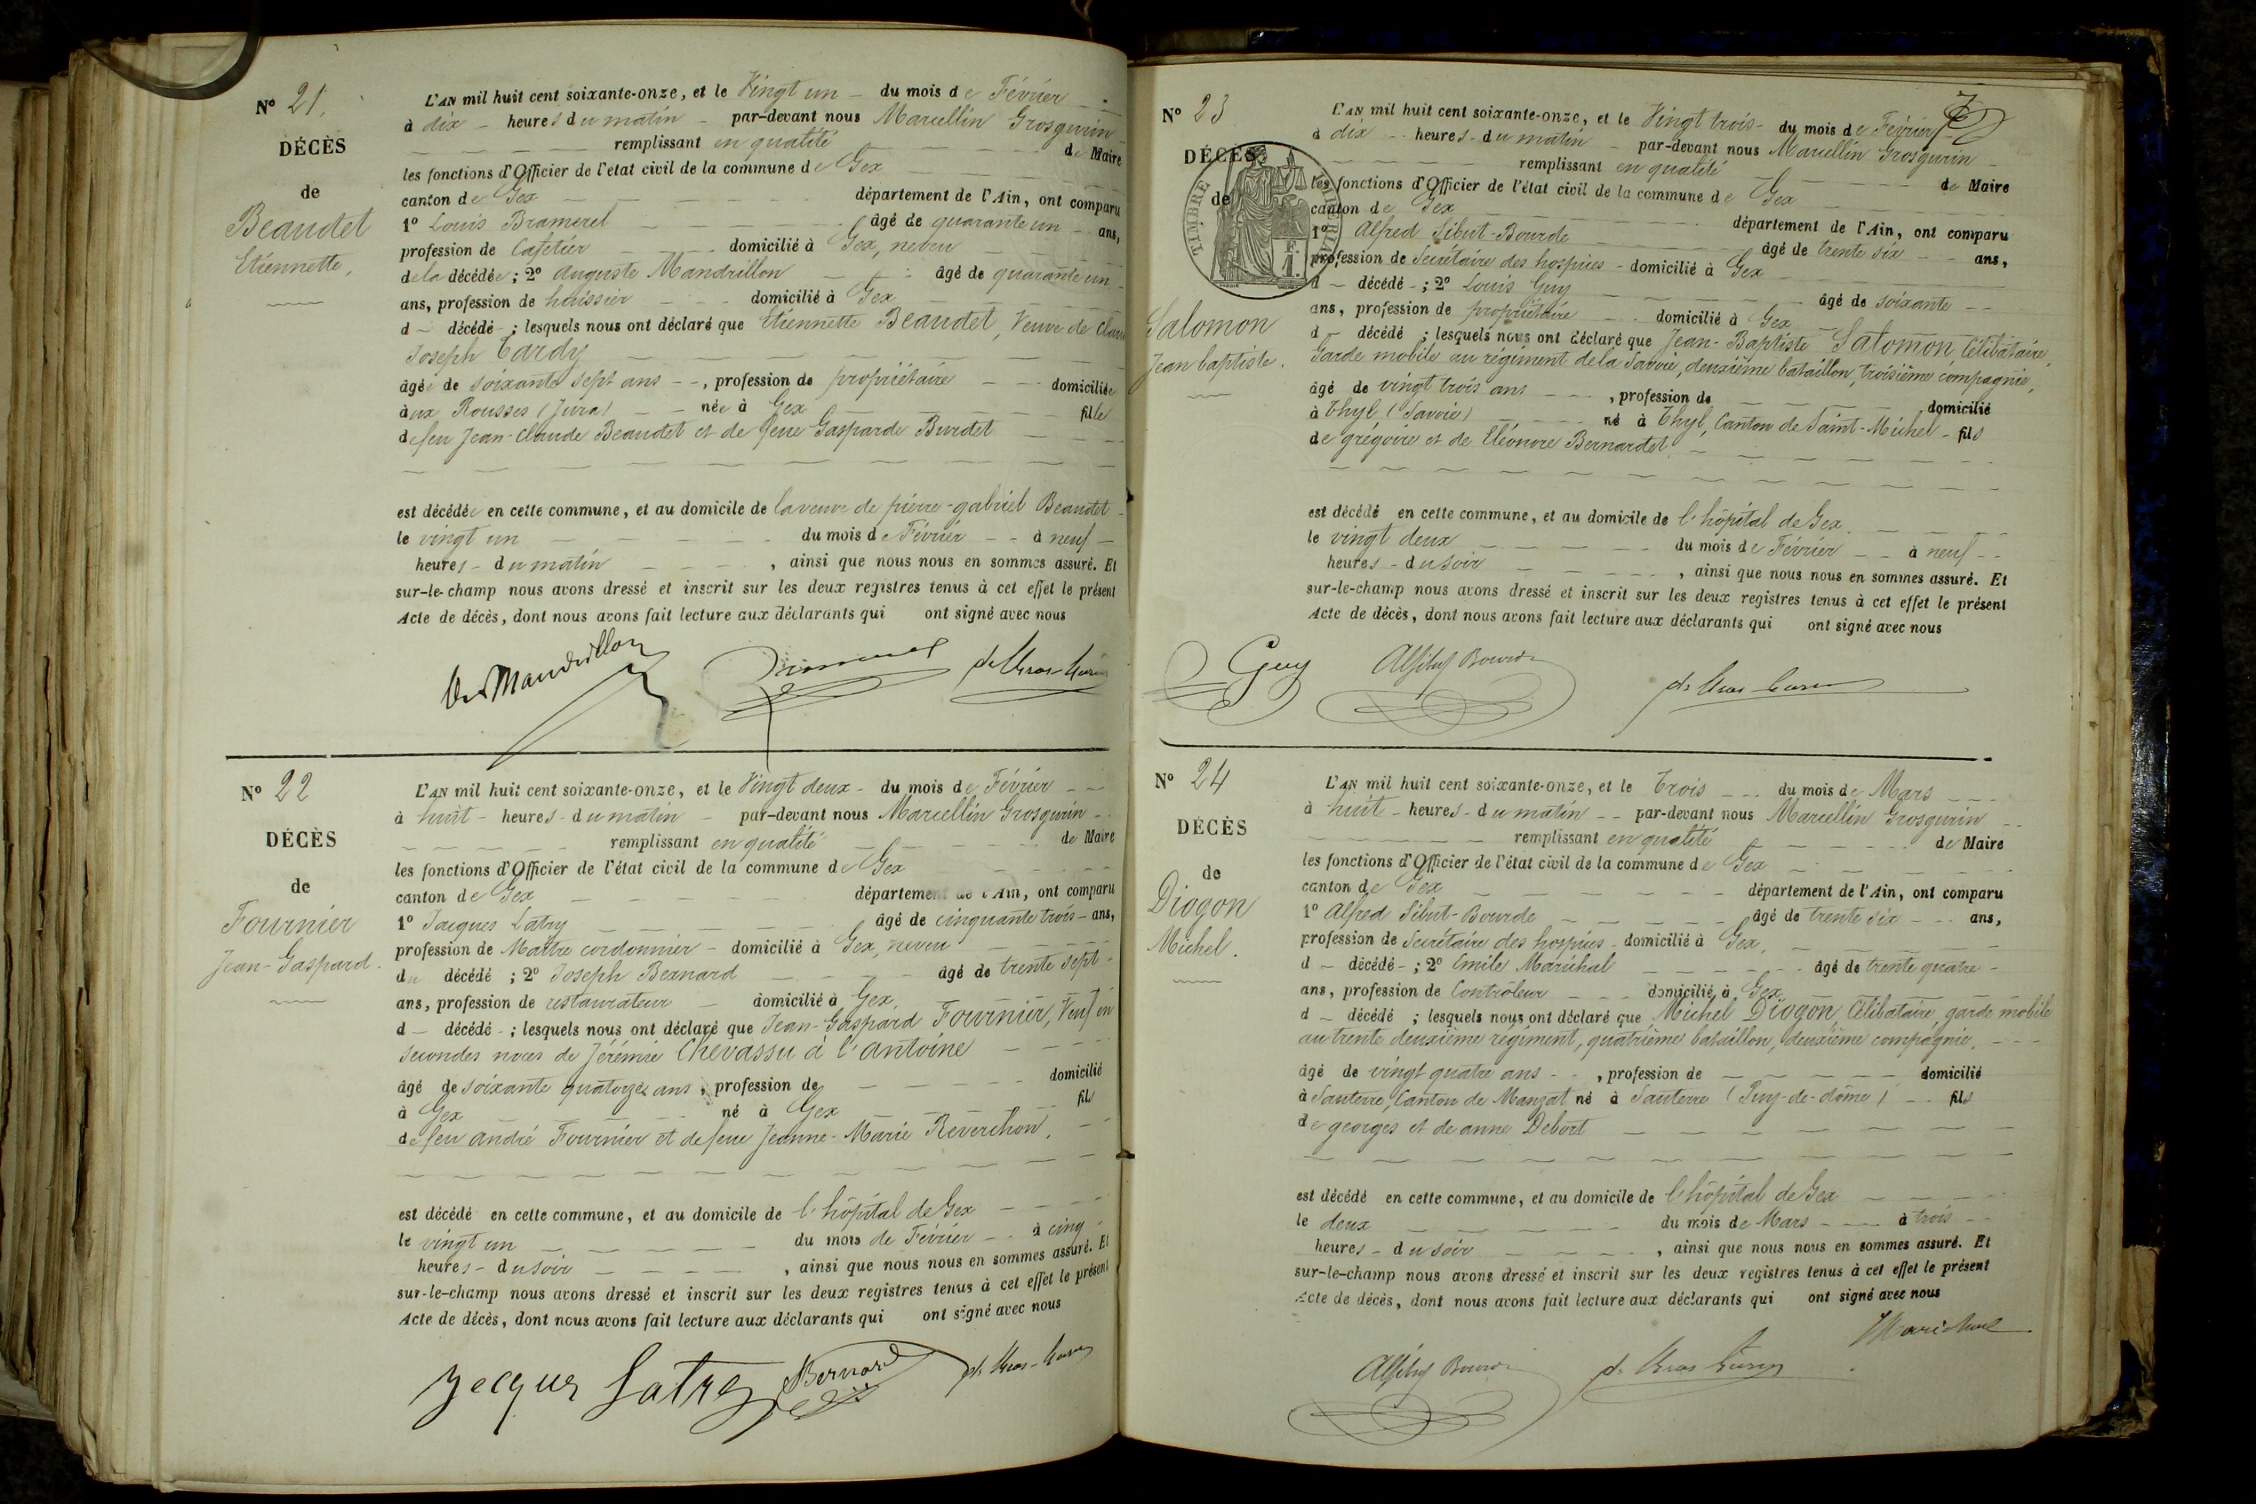 N° 21.
DÉCÈS
de
Beaudet
Etiennette,
L'AN mil huit cent soixante-onze, et le Vingt un du mois de Février
à dix heures du matin par-devant nous Marcellin Grosgurin
remplissant en qualité de Maire
les fonctions d'Officier de l'état civil de la commune de Gex
canton de Gex département de l'Ain, ont comparu
1° Louis Bramerel âgé de quarante un ans,
profession de Cafetier domicilié à Gex, neveu
de la décédée ; 2° Auguste Mandrillon âgé de quarante un
ans, profession de huissier domicilié à Gex
d décédé ; lesquels nous ont déclaré que Etiennette Beaudet, Veuve de
Joseph Tardy
âgée de soixante sept ans, profession de propriétaire domiciliée
à ux Rousses (Jura) née à Gex fille
de feu Jean-Claude Beaudet et de feue Gasparde Burdet
est décédée en cette commune, et au domicile de la veuve de pierre-gabriel Beaudet
le vingt un du mois de Février à neuf
heures du matin, ainsi que nous nous en sommes assuré. Et
sur-le-champ nous avons dressé et inscrit sur les deux registres tenus à cet effet le présent
Acte de décès, dont nous avons fait lecture aux déclarants qui ont signé avec nous
Mandrillon
N° 22
DÉCÈS
de
Fournier
Jean-Gaspard.
L'AN mil huit cent soixante-onze, et le Vingt deux du mois de Février
à huit heures du matin par-devant nous Marcellin Grosgurin
remplissant en qualité de Maire
les fonctions d'Officier de l'état civil de la commune de Gex
canton de Gex département de l'Ain, ont comparu
1° Jacques Latry âgé de cinquante trois ans,
profession de Maître cordonnier domicilié à Gex, neveu
du décédé ; 2° Joseph Bernard âgé de trente sept
ans, profession de restaurateur domicilié à Gex,
d décédé ; lesquels nous ont déclaré que Jean-Gaspard Fournier, Veuf en
secondes noces de Jérémie Chevassu à l'antoine
âgé de soixante quatorze ans, profession de domicilié
à Gex né à Gex fils
de feu andré Fournier et de feue Jeanne-Marie Reverchon,
est décédé en cette commune, et au domicile de l'hôpital de Gex
le vingt un du mois de Février à cinq
heures du soir, ainsi que nous nous en sommes assuré. Et
sur-le-champ nous avons dressé et inscrit sur les deux registres tenus à cet effet le présent
Acte de décès, dont nous avons fait lecture aux déclarants qui ont signé avec nous
Jecques Latry Bernard
N° 23
DÉCÈS
de
Salomon
Jean baptiste.
TIMBRE
L'AN mil huit cent soixante-onze, et le Vingt trois du mois de Février
à dix heures du matin par-devant nous Marcellin Grosgurin
remplissant en qualité de Maire
les fonctions d'Officier de l'état civil de la commune de Gex
canton de Gex département de l'Ain, ont comparu
1° Alfred Sibut-Bourde âgé de trente six ans,
profession de Secrétaire des hospices domicilié à Gex
d décédé ; 2° Louis Guy âgé de soixante
ans, profession de propriétaire domicilié à Gex
d décédé ; lesquels nous ont déclaré que Jean-Baptiste Salomon, Célibataire,
Garde mobile au régiment de la Savoie, deuxième bataillon, troisième compagnie,
âgé de vingt trois ans, profession de domicilié
à Thyl (Savoie) né à Thyl, Canton de Saint-Michel fils
de grégoire et de Eléonore Bernardet
est décédé en cette commune, et au domicile de l'hôpital de Gex.
le vingt deux du mois de Février à neuf
heures du soir, ainsi que nous nous en sommes assuré. Et
sur-le-champ nous avons dressé et inscrit sur les deux registres tenus à cet effet le présent
Acte de décès, dont nous avons fait lecture aux déclarants qui ont signé avec nous
Guy
N° 24
DÉCÈS
de
Diogon
Michel.
L'AN mil huit cent soixante-onze, et le Trois du mois de Mars
à huit heures du matin par-devant nous Marcellin Grosgurin
remplissant en qualité de Maire
les fonctions d'Officier de l'état civil de la commune de Gex
canton de Gex département de l'Ain, ont comparu
1° Alfred Sibut-Bourde âgé de trente six ans,
profession de Secrétaire des hospices domicilié à Gex,
d décédé ; 2° Emile Maréchal âgé de trente quatre
ans, profession de Contrôleur domicilié à Gex
d décédé ; lesquels nous ont déclaré que Michel Diogon, Célibataire, garde mobile
au trente deuxième régiment, quatrième bataillon, deuxième compagnie,
âgé de vingt quatre ans, profession de domicilié
à Sauterre, Canton de Manzat né à Sauterre (Puy-de-dôme) fils
de georges et de anne Debort
est décédé en cette commune, et au domicile de l'hôpital de Gex
le deux du mois de Mars à trois
heures du soir, ainsi que nous nous en sommes assuré. Et
sur-le-champ nous avons dressé et inscrit sur les deux registres tenus à cet effet le présent
Acte de décès, dont nous avons fait lecture aux déclarants qui ont signé avec nous
Maréchal